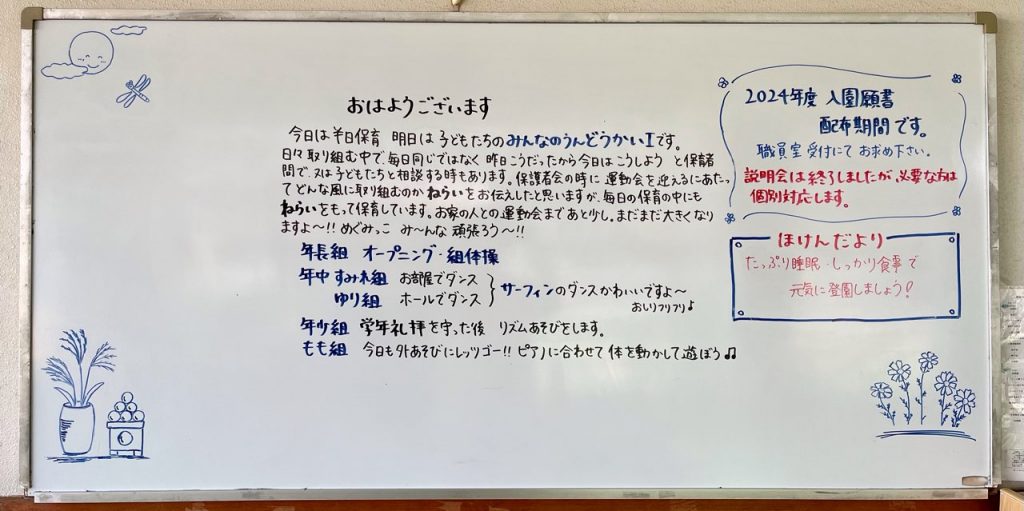 おはようございます
今日は半日保育 明日は子どもたちのみんなのうんどうかいⅠです。
日々取り組む中で、毎日同じではなく 昨日こうだったから今日はこうしよう と保育者
間で、又は子どもたちと相談する時もあります。保護者会の時に運動会を迎えるにあたっ
てどんな風に取り組むのか ねらいをお伝えしたと思いますが、毎日の保育の中にも
ねらいをもって保育しています。お家の人との運動会まであと少し。まだまだ大きくなり
ますよ〜!! めぐみっこ み〜んな 頑張ろう〜!!
年長組 オープニング・組体操
年中 すみれ組 お部屋でダンス
ゆり組 ホールでダンス
サーフィンのダンスかわいいですよ〜
おしりフリフリ♪
年少組 学年礼拝を守った後 リズムあそびをします。
もも組 今日も外あそびにレッツゴー!! ピアノに合わせて 体を動かして遊ぼう♫
2024年度 入園願書
配布期間です。
職員室受付にて お求め下さい。
説明会は終了しましたが、必要な方は
個別対応します。
ほけんだより
たっぷり睡眠・しっかり食事で
元気に登園しましょう!